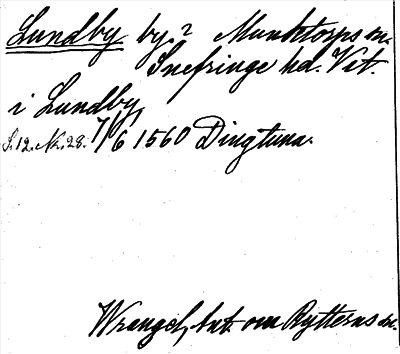 Lundby by? Munktorps sn.
Snefringe hd. Vst.
i Lundby
S. 12. Nr. 28. 7/6 1560 Dingtuna.
Wrangel, Ant. om Rytterns sn.